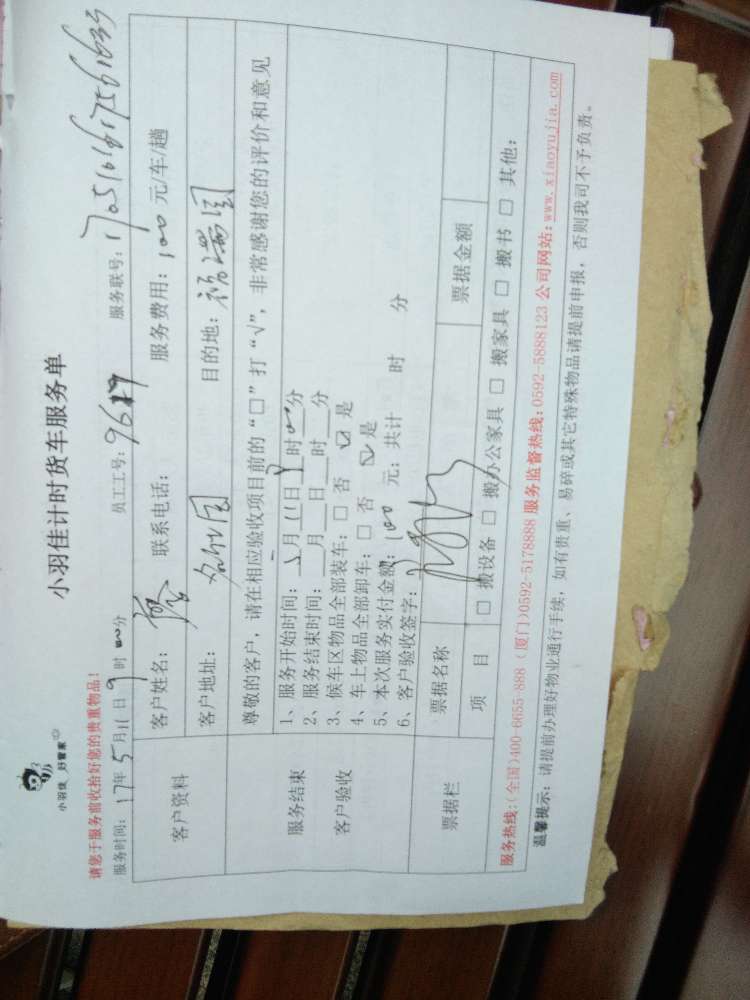 小羽佳 好管家
小羽佳计时货车服务单
请您于服务前收拾好您的贵重物品！
服务时间：17年5月11日9时00分 员工工号：9617 服务联号：
客户资料
客户姓名： 联系电话： 服务费用：100元/车/趟
客户地址： 目的地：
服务结束
客户验收
尊敬的客户，请在相应验收项目前的“□”打“√”，非常感谢您的评价和意见
1、服务开始时间：5月11日9时00分
2、服务结束时间：__月__日__时__分
3、候车区物品全部装车：□ 否 ☑ 是
4、车上物品全部卸车：□ 否 ☑ 是
5、本次服务实付金额：100 元；共计 时 分
6、客户验收签字：
票据栏
票据名称 票据金额
项 目 □ 搬设备 □ 搬办公家具 □ 搬家具 □ 搬书 □ 其他：
服务热线：(全国)400-6655-888 (厦门)0592-5178888 服务监督热线：0592-5888123 公司网站：www.xiaoyujia.com
温馨提示：请提前办理好物业通行手续，如有贵重、易碎或其它特殊物品请提前申报，否则我司不予负责。